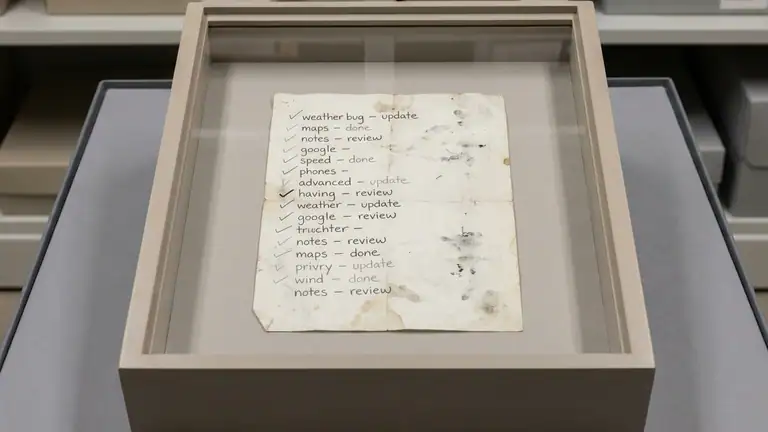 ✓ weather bug – update
✓ maps – done
✓ notes – review
✓ google –
✓ speed – done
✓ phones –
✓ advanced – update
✓ having – review
✓ weather – update
✓ google – review
✓ –
✓ notes – review
✓ maps – done
✓ privry – update
✓ wind – done
notes – review